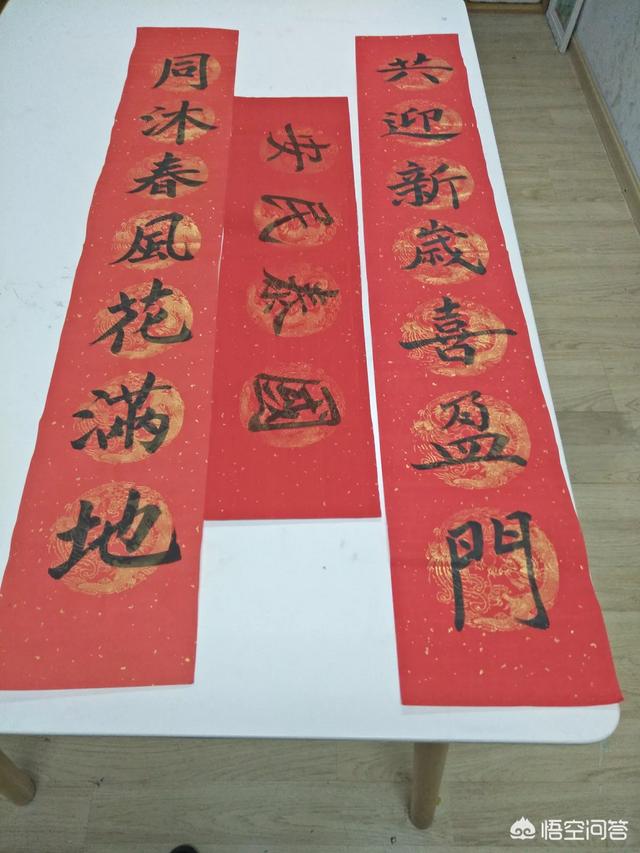 共迎新歳喜盈門
同沐春風花滿地
國泰民安
悟空问答